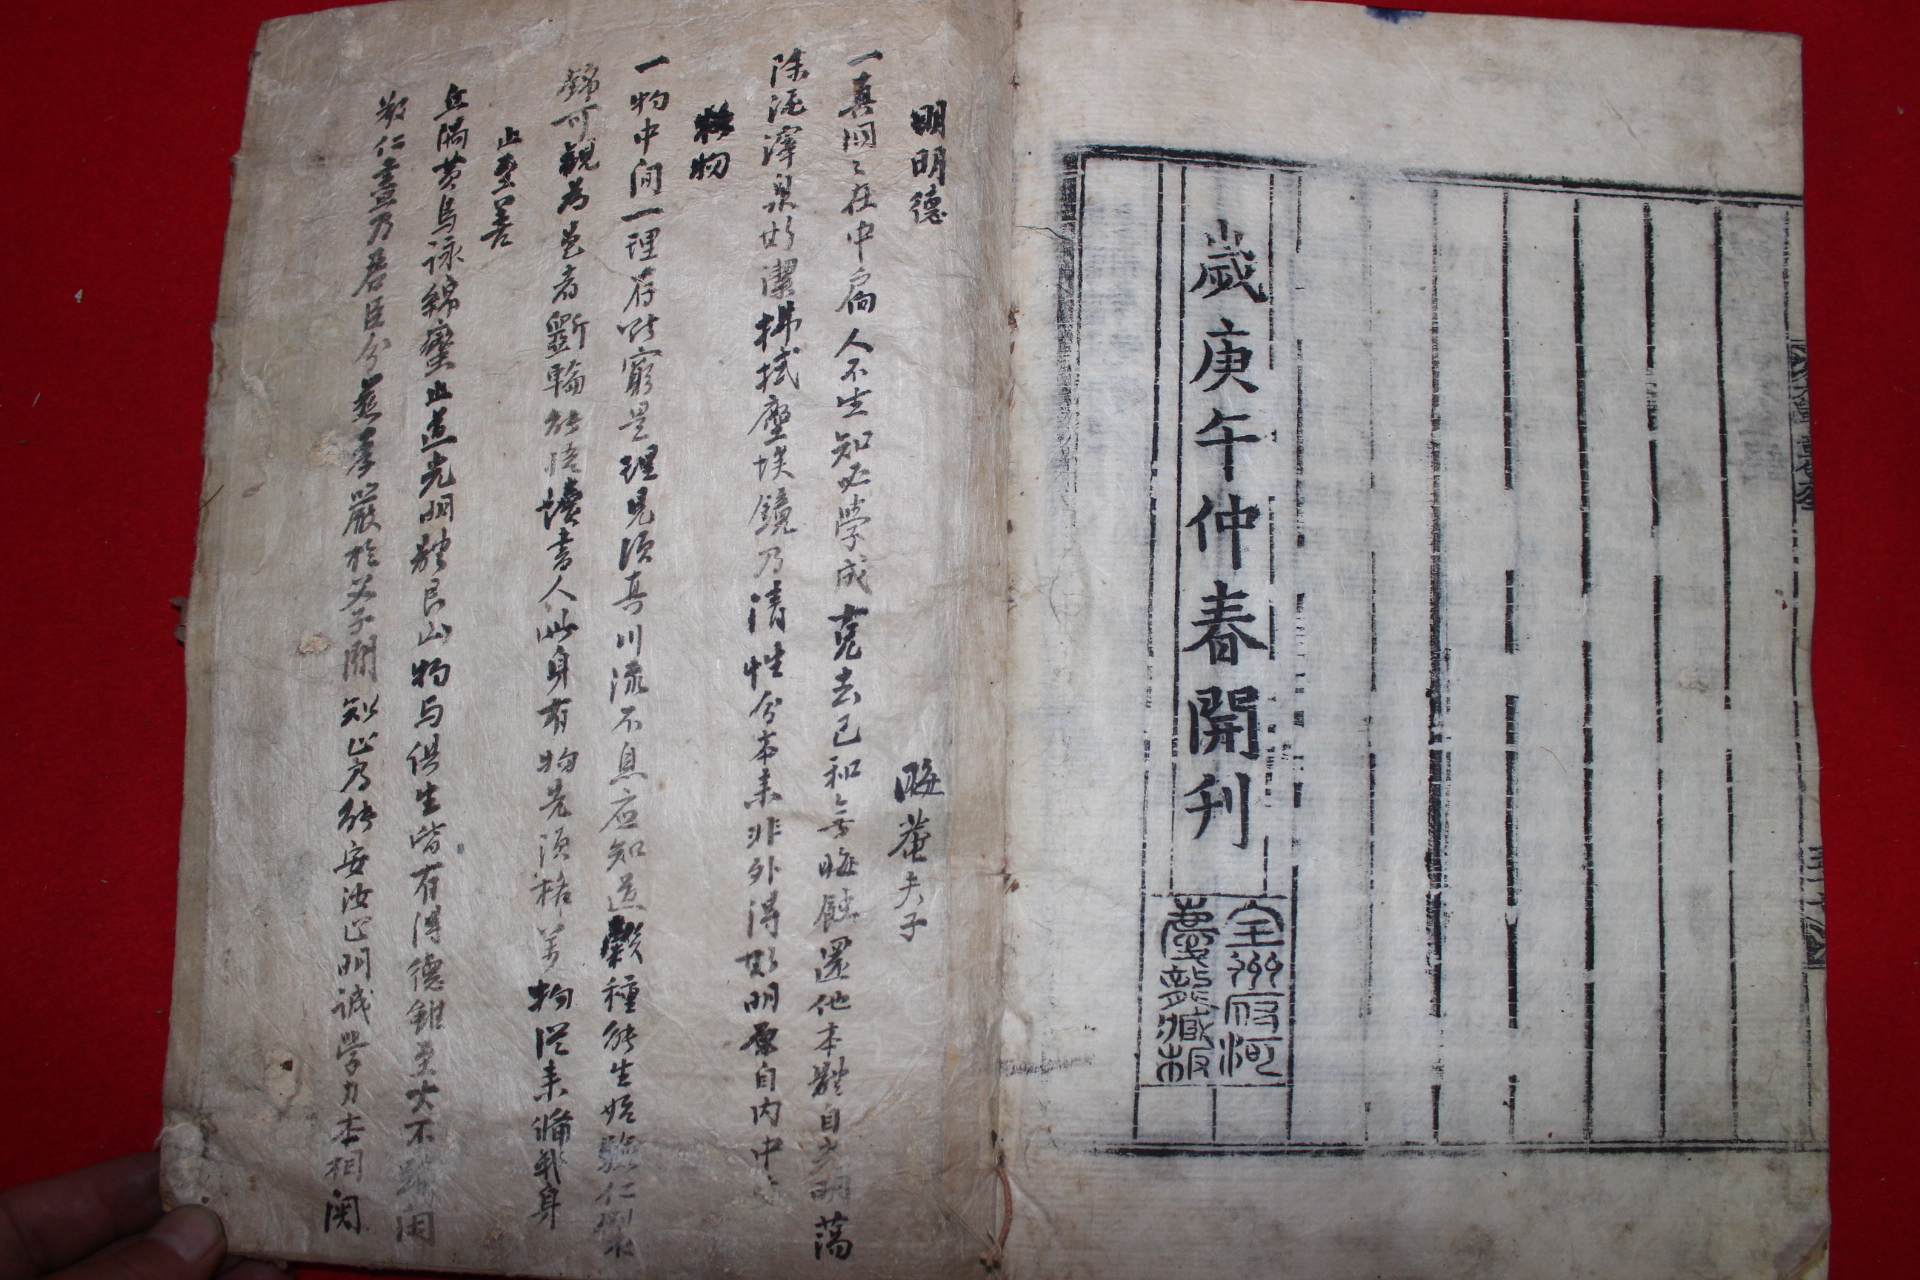 歲庚午仲春開刊
全州府河
慶龍藏板
明明德
晦菴夫子
一真圓〻在中扃人不生知必學成克去己私無晦蝕還他本體自光明蕩
除泥滓泉始潔拂拭塵埃鏡乃清性分本来非外得始明原自内中
格物
一物中間一理存欲窮是理見須真川流不息应知道穀種能生始驗仁
錦可観為邑者斲輪能悟讀書人此身有物先須格万物從来備我身
止至善
丘隅黄鳥詠綿蠻止道光明體艮山物与俱生皆有得德雖至大不踰闲
敬仁盡乃君臣分慈孝嚴於父子間知止方能安汝止明誠學力本相関